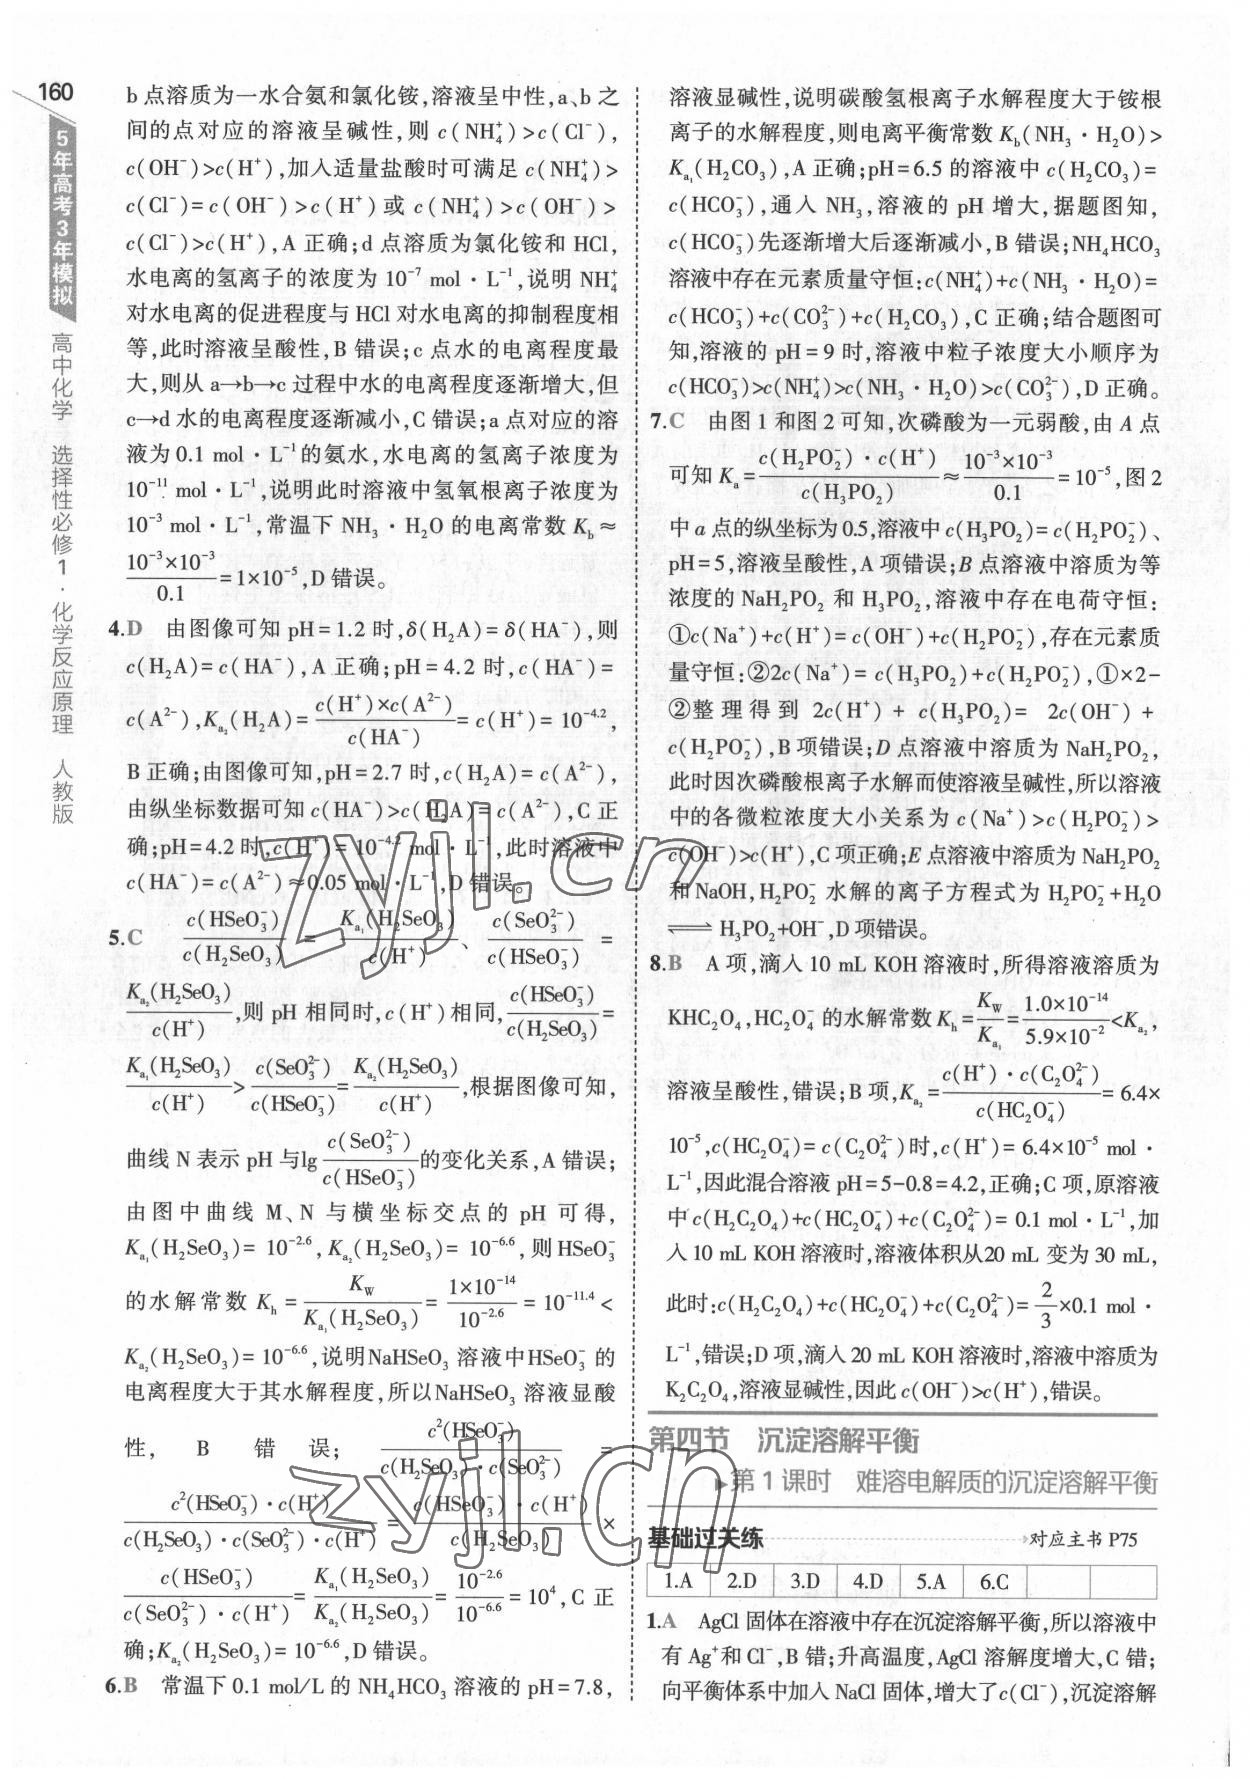 160
5年高考3年模拟
高中化学 选择性必修1·化学反应原理 人教版
b 点溶质为一水合氨和氯化铵,溶液呈中性,a、b 之
间的点对应的溶液呈碱性,则 c(NH₄⁺)>c(Cl⁻),
c(OH⁻)>c(H⁺),加入适量盐酸时可满足 c(NH₄⁺)>
c(Cl⁻)=c(OH⁻)>c(H⁺)或 c(NH₄⁺)>c(OH⁻)>
c(Cl⁻)>c(H⁺),A 正确;d 点溶质为氯化铵和 HCl,
水电离的氢离子的浓度为 10⁻⁷ mol·L⁻¹,说明 NH₄⁺
对水电离的促进程度与 HCl 对水电离的抑制程度相
等,此时溶液呈酸性,B 错误;c 点水的电离程度最
大,则从 a→b→c 过程中水的电离程度逐渐增大,但
c→d 水的电离程度逐渐减小,C 错误;a 点对应的溶
液为 0.1 mol·L⁻¹的氨水,水电离的氢离子浓度为
10⁻¹¹ mol·L⁻¹,说明此时溶液中氢氧根离子浓度为
10⁻³ mol·L⁻¹,常温下 NH₃·H₂O 的电离常数 K_b≈
(10⁻³×10⁻³)/0.1=1×10⁻⁵,D 错误。
4.D 由图像可知 pH=1.2 时,δ(H₂A)=δ(HA⁻),则
c(H₂A)=c(HA⁻),A 正确;pH=4.2 时,c(HA⁻)=
c(A²⁻),K_a₂(H₂A)=(c(H⁺)×c(A²⁻))/c(HA⁻)=c(H⁺)=10⁻⁴·²,
B 正确;由图像可知,pH=2.7 时,c(H₂A)=c(A²⁻),
由纵坐标数据可知 c(HA⁻)>c(H₂A)=c(A²⁻),C 正
确;pH=4.2 时,c(H⁺)=10⁻⁴·² mol·L⁻¹,此时溶液中
c(HA⁻)=c(A²⁻)≈0.05 mol·L⁻¹,D 错误。
5.C c(HSeO₃⁻)/c(H₂SeO₃)=K_a₁(H₂SeO₃)/c(H⁺)、c(SeO₃²⁻)/c(HSeO₃⁻)=
K_a₂(H₂SeO₃)/c(H⁺),则 pH 相同时,c(H⁺)相同,c(HSeO₃⁻)/c(H₂SeO₃)=
K_a₁(H₂SeO₃)/c(H⁺)>c(SeO₃²⁻)/c(HSeO₃⁻)=K_a₂(H₂SeO₃)/c(H⁺),根据图像可知,
曲线 N 表示 pH 与lg c(SeO₃²⁻)/c(HSeO₃⁻)的变化关系,A 错误;
由图中曲线 M、N 与横坐标交点的 pH 可得,
K_a₁(H₂SeO₃)=10⁻²·⁶,K_a₂(H₂SeO₃)=10⁻⁶·⁶,则 HSeO₃⁻
的水解常数 K_h=K_W/K_a₁(H₂SeO₃)=(1×10⁻¹⁴)/10⁻²·⁶=10⁻¹¹·⁴<
K_a₂(H₂SeO₃)=10⁻⁶·⁶,说明NaHSeO₃ 溶液中HSeO₃⁻的
电离程度大于其水解程度,所以NaHSeO₃ 溶液显酸
性,B 错误;c²(HSeO₃⁻)/(c(H₂SeO₃)·c(SeO₃²⁻))=
(c²(HSeO₃⁻)·c(H⁺))/(c(H₂SeO₃)·c(SeO₃²⁻)·c(H⁺))=(c(HSeO₃⁻)·c(H⁺))/c(H₂SeO₃)×
c(HSeO₃⁻)/(c(SeO₃²⁻)·c(H⁺))=K_a₁(H₂SeO₃)/K_a₂(H₂SeO₃)=10⁻²·⁶/10⁻⁶·⁶=10⁴,C 正
确;K_a₂(H₂SeO₃)=10⁻⁶·⁶,D 错误。
6.B 常温下 0.1 mol/L 的 NH₄HCO₃ 溶液的 pH=7.8,
溶液显碱性,说明碳酸氢根离子水解程度大于铵根
离子的水解程度,则电离平衡常数 K_b(NH₃·H₂O)>
K_a₁(H₂CO₃),A 正确;pH=6.5 的溶液中 c(H₂CO₃)=
c(HCO₃⁻),通入 NH₃,溶液的 pH 增大,据题图知,
c(HCO₃⁻)先逐渐增大后逐渐减小,B 错误;NH₄HCO₃
溶液中存在元素质量守恒:c(NH₄⁺)+c(NH₃·H₂O)=
c(HCO₃⁻)+c(CO₃²⁻)+c(H₂CO₃),C 正确;结合题图可
知,溶液的 pH=9 时,溶液中粒子浓度大小顺序为
c(HCO₃⁻)>c(NH₄⁺)>c(NH₃·H₂O)>c(CO₃²⁻),D 正确。
7.C 由图 1 和图 2 可知,次磷酸为一元弱酸,由 A 点
可知 K_a=(c(H₂PO₂⁻)·c(H⁺))/c(H₃PO₂)≈(10⁻³×10⁻³)/0.1=10⁻⁵,图 2
中 a 点的纵坐标为 0.5,溶液中 c(H₃PO₂)=c(H₂PO₂⁻)、
pH=5,溶液呈酸性,A 项错误;B 点溶液中溶质为等
浓度的 NaH₂PO₂ 和 H₃PO₂,溶液中存在电荷守恒:
①c(Na⁺)+c(H⁺)=c(OH⁻)+c(H₂PO₂⁻),存在元素质
量守恒:②2c(Na⁺)=c(H₃PO₂)+c(H₂PO₂⁻),①×2-
②整理得到 2c(H⁺)+c(H₃PO₂)=2c(OH⁻)+
c(H₂PO₂⁻),B 项错误;D 点溶液中溶质为 NaH₂PO₂,
此时因次磷酸根离子水解而使溶液呈碱性,所以溶液
中的各微粒浓度大小关系为 c(Na⁺)>c(H₂PO₂⁻)>
c(OH⁻)>c(H⁺),C 项正确;E 点溶液中溶质为 NaH₂PO₂
和 NaOH,H₂PO₂⁻ 水解的离子方程式为 H₂PO₂⁻+H₂O
⇌H₃PO₂+OH⁻,D 项错误。
8.B A 项,滴入 10 mL KOH 溶液时,所得溶液溶质为
KHC₂O₄,HC₂O₄⁻ 的水解常数 K_h=K_W/K_a₁=(1.0×10⁻¹⁴)/(5.9×10⁻²)<K_a₂,
溶液呈酸性,错误;B 项,K_a₂=(c(H⁺)·c(C₂O₄²⁻))/c(HC₂O₄⁻)=6.4×
10⁻⁵,c(HC₂O₄⁻)=c(C₂O₄²⁻)时,c(H⁺)=6.4×10⁻⁵ mol·
L⁻¹,因此混合溶液 pH=5-0.8=4.2,正确;C 项,原溶液
中 c(H₂C₂O₄)+c(HC₂O₄⁻)+c(C₂O₄²⁻)=0.1 mol·L⁻¹,加
入 10 mL KOH 溶液时,溶液体积从20 mL 变为 30 mL,
此时:c(H₂C₂O₄)+c(HC₂O₄⁻)+c(C₂O₄²⁻)=2/3×0.1 mol·
L⁻¹,错误;D 项,滴入 20 mL KOH 溶液时,溶液中溶质为
K₂C₂O₄,溶液显碱性,因此 c(OH⁻)>c(H⁺),错误。
第四节 沉淀溶解平衡
▶第1课时 难溶电解质的沉淀溶解平衡
基础过关练 对应主书 P75
1.A 2.D 3.D 4.D 5.A 6.C
1.A AgCl 固体在溶液中存在沉淀溶解平衡,所以溶液中
有 Ag⁺和 Cl⁻,B 错;升高温度,AgCl 溶解度增大,C 错;
向平衡体系中加入 NaCl 固体,增大了c(Cl⁻),沉淀溶解
zyjl.cn
zyjl.cn